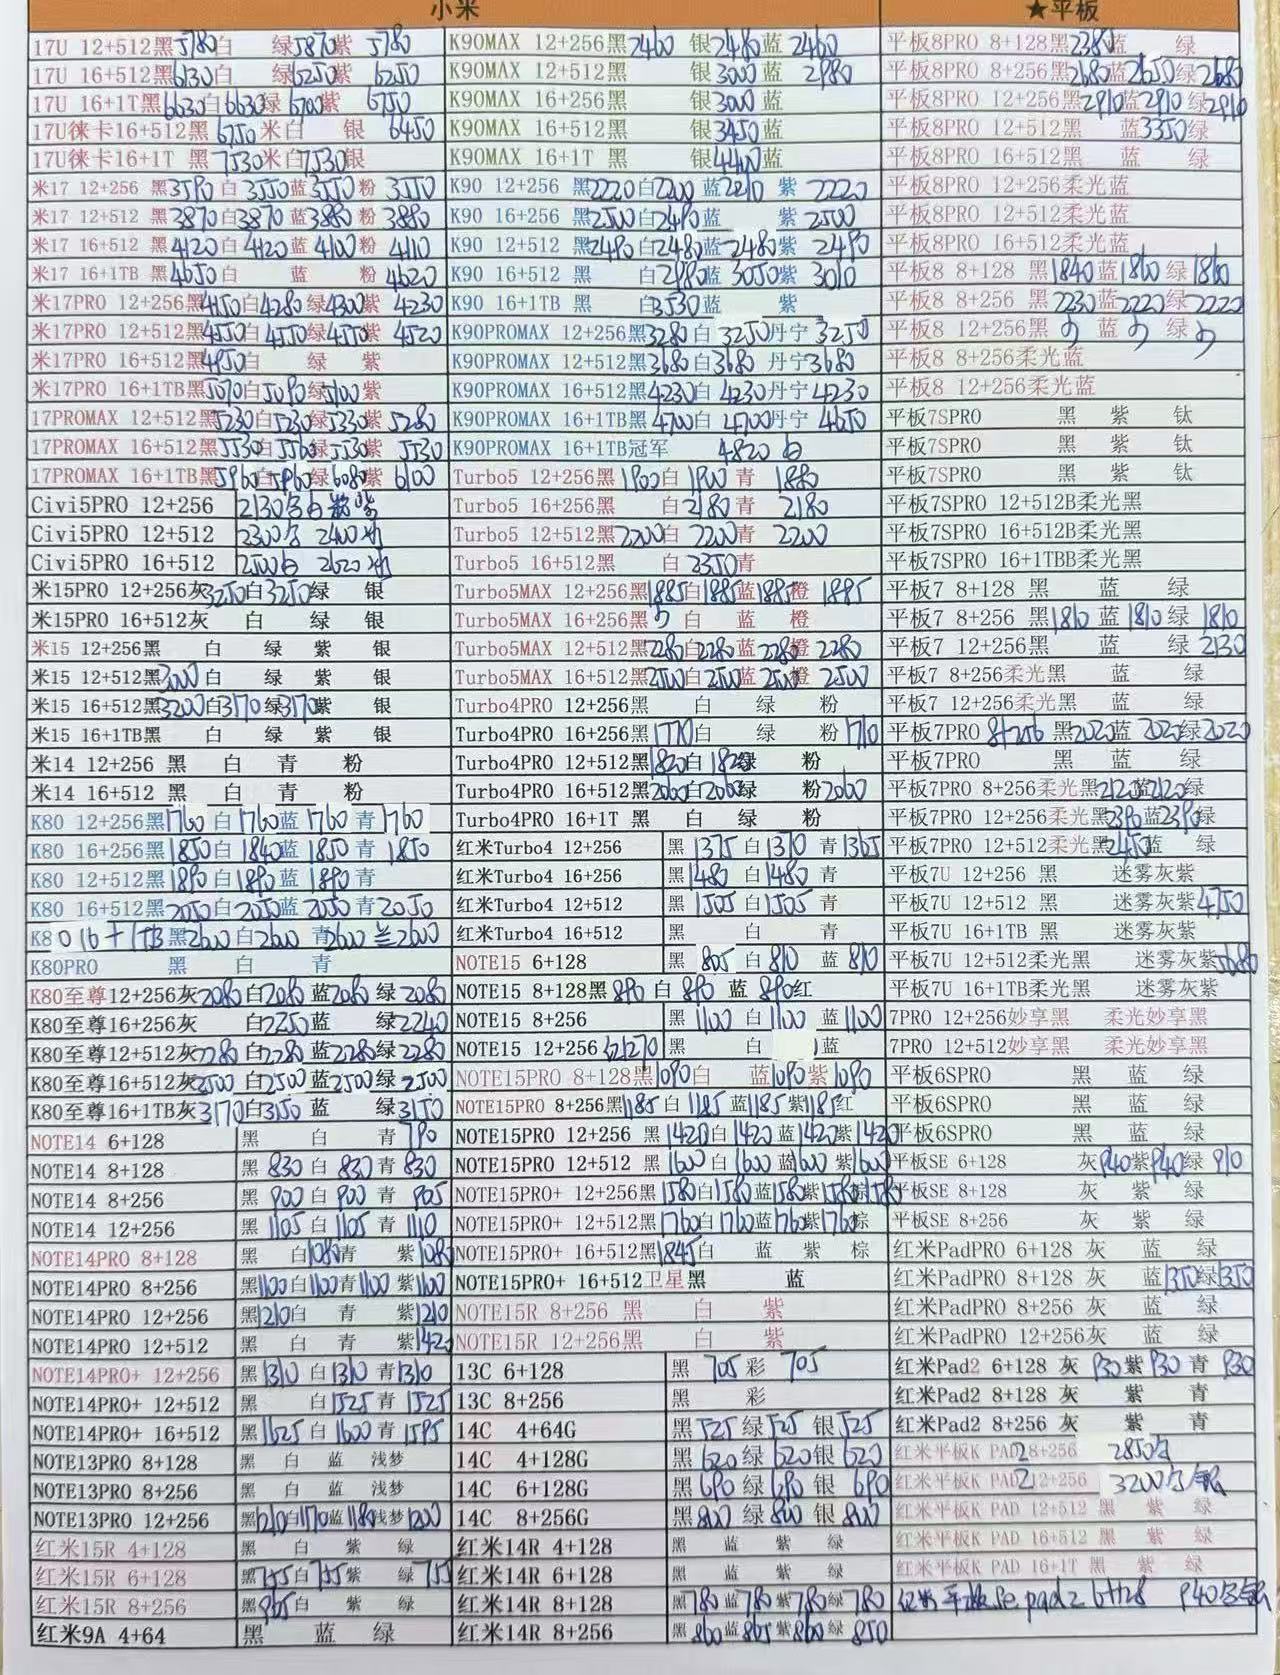 小米
★平板
17U 12+512黑5780白 绿5870紫 5780
17U 16+512黑6130白 绿6250紫 6250
17U 16+1T黑6630白6630绿6700紫 6750
17U徕卡16+512黑6750米白 银 6450
17U徕卡16+1T 黑7530米白7530银
米17 12+256 黑3590白3550蓝3550粉 3550
米17 12+512 黑3870白3870蓝3880粉 3880
米17 16+512 黑4120白4120蓝4100粉 4110
米17 16+1TB 黑4650白 蓝 粉4620
米17PRO 12+256黑4150白4280绿4300紫 4230
米17PRO 12+512黑4550白4550绿4550紫 4520
米17PRO 16+512黑4950白 绿 紫
米17PRO 16+1TB黑5070白5090绿5100紫
17PROMAX 12+512黑5230白5230绿5330紫5280
17PROMAX 16+512黑5530白5560绿5530紫 5530
17PROMAX 16+1TB黑5960白5960绿6080紫 6100
Civi5PRO 12+256 2130
Civi5PRO 12+512 2300 2400
Civi5PRO 16+512 2500白 2620
米15PRO 12+256灰3250白3250绿 银
米15PRO 16+512灰 白 绿 银
米15 12+256黑 白 绿 紫 银
米15 12+512黑3000白 绿 紫 银
米15 16+512黑3200白3170绿3170紫 银
米15 16+1TB黑 白 绿 紫 银
米14 12+256 黑 白 青 粉
米14 16+512 黑 白 青 粉
K80 12+256黑1760白1760蓝1760青1760
K80 16+256黑1850白1840蓝1850青1850
K80 12+512黑1890白1890蓝1890青
K80 16+512黑2050白2050蓝2050青2050
K80 16+1TB黑2600白2600青2600兰2600
K80PRO 黑 白 青
K80至尊12+256灰2080白2080蓝2080绿2080
K80至尊16+256灰 白2250蓝 绿2240
K80至尊12+512灰2280白2280蓝2280绿2280
K80至尊16+512灰2500白2500蓝2500绿2500
K80至尊16+1TB灰3170白3150蓝 绿3150
NOTE14 6+128 黑 白 青790
NOTE14 8+128 黑830白830青830
NOTE14 8+256 黑900白900青905
NOTE14 12+256 黑1105白1105青1110
NOTE14PRO 8+128 黑 白1080青 紫1080
NOTE14PRO 8+256 黑1100白1100青1100紫1100
NOTE14PRO 12+256 黑1210白 青 紫1210
NOTE14PRO 12+512 黑 白 青 紫1420
NOTE14PRO+ 12+256 黑1310白1310青1310
NOTE14PRO+ 12+512 黑 白1525青1525
NOTE14PRO+ 16+512 黑1625白1600青1595
NOTE13PRO 8+128 黑 白 蓝 浅梦
NOTE13PRO 8+256 黑 白 蓝 浅梦
NOTE13PRO 12+256 黑1210白1170蓝1180浅梦1200
红米15R 4+128 黑 白 紫 绿
红米15R 6+128 黑755白755紫 绿755
红米15R 8+256 黑965白 紫 绿
红米9A 4+64 黑 蓝 绿
K90MAX 12+256黑2460 银2480蓝 2460
K90MAX 12+512黑 银3000蓝 2980
K90MAX 16+256黑 银3000蓝
K90MAX 16+512黑 银3450蓝
K90MAX 16+1T 黑 银4400蓝
K90 12+256 黑2220白2200蓝2210紫 2220
K90 16+256 黑2500白2490蓝 紫 2500
K90 12+512 黑2490白2480蓝2480紫 2490
K90 16+512 黑 白2980蓝3050紫3010
K90 16+1TB 黑 白3530蓝 紫
K90PROMAX 12+256黑3280白3250丹宁3250
K90PROMAX 12+512黑3680白3680 丹宁3680
K90PROMAX 16+512黑4230白4230丹宁4230
K90PROMAX 16+1TB黑4700白4700丹宁4650
K90PROMAX 16+1TB冠军 4820 白
Turbo5 12+256黑1900白1900青 1880
Turbo5 16+256黑 白2180青 2180
Turbo5 12+512黑2200白2200青 2200
Turbo5 16+512黑 白2350青
Turbo5MAX 12+256黑1885白1885蓝1885橙 1885
Turbo5MAX 16+256黑 白 蓝 橙
Turbo5MAX 12+512黑2280白2280蓝2280橙 2280
Turbo5MAX 16+512黑2500白2500蓝2500橙2500
Turbo4PRO 12+256黑 白 绿 粉
Turbo4PRO 16+256黑1770白 绿 粉1710
Turbo4PRO 12+512黑1820白1820绿 粉
Turbo4PRO 16+512黑2060白2060绿 粉2060
Turbo4PRO 16+1T 黑 白 绿 粉
红米Turbo4 12+256 黑1375白1370青1365
红米Turbo4 16+256 黑1480白1480青
红米Turbo4 12+512 黑1505白1505青
红米Turbo4 16+512 黑 白 青
NOTE15 6+128 黑805白810蓝810
NOTE15 8+128黑890白890蓝890红
NOTE15 8+256 黑1100白1100蓝1100
NOTE15 12+256 黑 白 蓝
NOTE15PRO 8+128黑1090白 蓝1090紫1090
NOTE15PRO 8+256黑1185白1185蓝1185紫1185红
NOTE15PRO 12+256 黑1420白1420蓝1420紫1420
NOTE15PRO 12+512 黑1600白1600蓝1600紫1600
NOTE15PRO+ 12+256黑1580白1580蓝1580紫1580棕1580
NOTE15PRO+ 12+512黑1760白1760蓝1760紫1760棕
NOTE15PRO+ 16+512黑1845白 蓝 紫 棕
NOTE15PRO+ 16+512卫星黑 蓝
NOTE15R 8+256 黑 白 紫
NOTE15R 12+256黑 白 紫
13C 6+128 黑 705彩 705
13C 8+256 黑 彩
14C 4+64G 黑525绿525银525
14C 4+128G 黑620绿620银620
14C 6+128G 黑690绿690银690
14C 8+256G 黑800绿800银800
红米14R 4+128 黑 蓝 紫 绿
红米14R 6+128 黑 蓝 紫 绿
红米14R 8+128 黑780蓝780紫780绿780
红米14R 8+256 黑860蓝865紫860绿850
平板8PRO 8+128黑2380蓝 绿
平板8PRO 8+256黑2680蓝2650绿2680
平板8PRO 12+256黑2910蓝2910绿2910
平板8PRO 12+512黑 蓝3350绿
平板8PRO 16+512黑 蓝 绿
平板8PRO 12+256柔光蓝
平板8PRO 12+512柔光蓝
平板8PRO 16+512柔光蓝
平板8 8+128 黑1840蓝1860绿1860
平板8 8+256 黑2230蓝2220绿2220
平板8 12+256黑 蓝 绿
平板8 8+256柔光蓝
平板8 12+256柔光蓝
平板7SPRO 黑 紫 钛
平板7SPRO 黑 紫 钛
平板7SPRO 黑 紫 钛
平板7SPRO 12+512B柔光黑
平板7SPRO 16+512B柔光黑
平板7SPRO 16+1TBB柔光黑
平板7 8+128 黑 蓝 绿
平板7 8+256 黑1810蓝1810绿1810
平板7 12+256黑 蓝 绿2130
平板7 8+256柔光黑 蓝 绿
平板7 12+256柔光黑 蓝 绿
平板7PRO 8+256 黑2020蓝2020绿2020
平板7PRO 黑 蓝 绿
平板7PRO 8+256柔光黑2120蓝2120绿
平板7PRO 12+256柔光黑2390蓝2390绿
平板7PRO 12+512柔光黑2450蓝 绿
平板7U 12+256 黑 迷雾灰紫
平板7U 12+512 黑 迷雾灰紫4750
平板7U 16+1TB 黑 迷雾灰紫
平板7U 12+512柔光黑 迷雾灰紫
平板7U 16+1TB柔光黑 迷雾灰紫
7PRO 12+256妙享黑 柔光妙享黑
7PRO 12+512妙享黑 柔光妙享黑
平板6SPRO 黑 蓝 绿
平板6SPRO 黑 蓝 绿
平板6SPRO 黑 蓝 绿
平板SE 6+128 灰940紫940绿910
平板SE 8+128 灰 紫 绿
平板SE 8+256 灰 紫 绿
红米PadPRO 6+128 灰 蓝 绿
红米PadPRO 8+128 灰 蓝1350绿1350
红米PadPRO 8+256 灰 蓝 绿
红米PadPRO 12+256灰 蓝 绿
红米Pad2 6+128 灰 930紫930青 930
红米Pad2 8+128 灰 紫 青
红米Pad2 8+256 灰 紫 青
红米平板K PAD2 8+256 2850
红米平板K PAD2 12+256 3200
红米平板K PAD 12+512 黑 紫 绿
红米平板K PAD 16+512 黑 紫 绿
红米平板K PAD 16+1T 黑 紫 绿
红米平板Se pad2 6+128 940